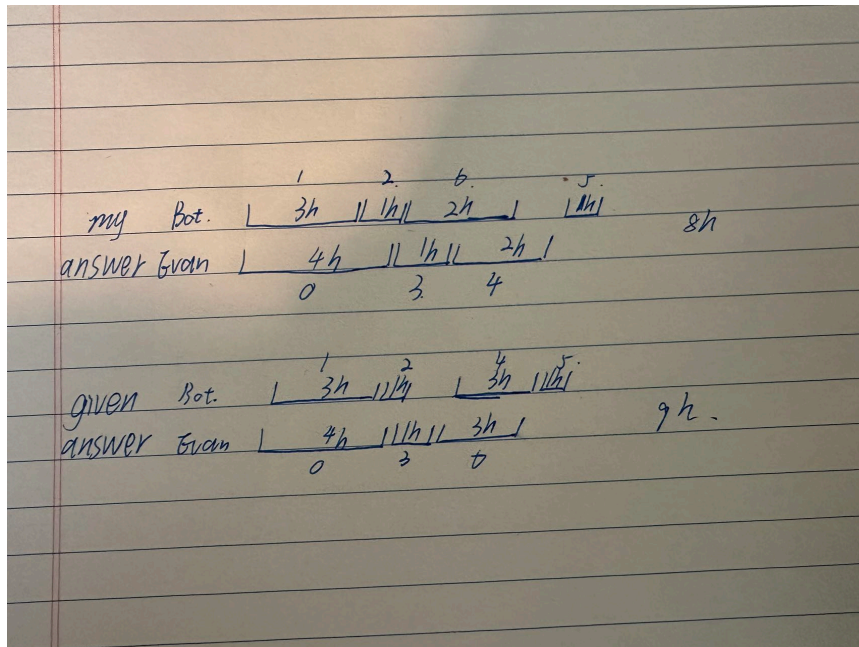 1 2. 6. 5.
my Bot. 3h 1h 2h 1h 8h
answer Evan 4h 1h 2h
0 3. 4
1 2 4 5.
given Bot. 3h 1h 3h 1h 9h.
answer Evan 4h 1h 3h
0 3 6